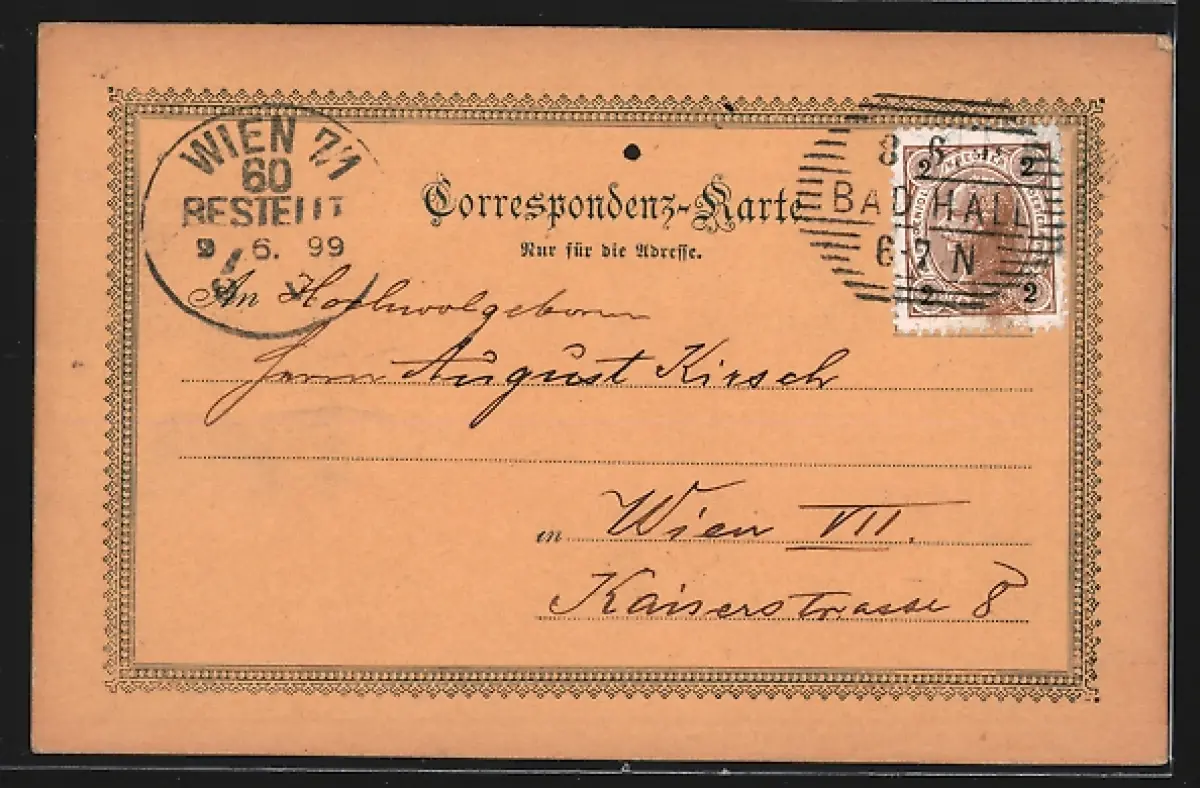 WIEN 7/1
60
BESTELLT
9 6. 99
Correspondenz-Karte
Nur für die Adresse.
2 2
8 6
BAD HALL
6-7 N
2 2
An Hochwolgeboren
Herrn August Kirsch
in Wien VII.
Kaiserstrasse 8